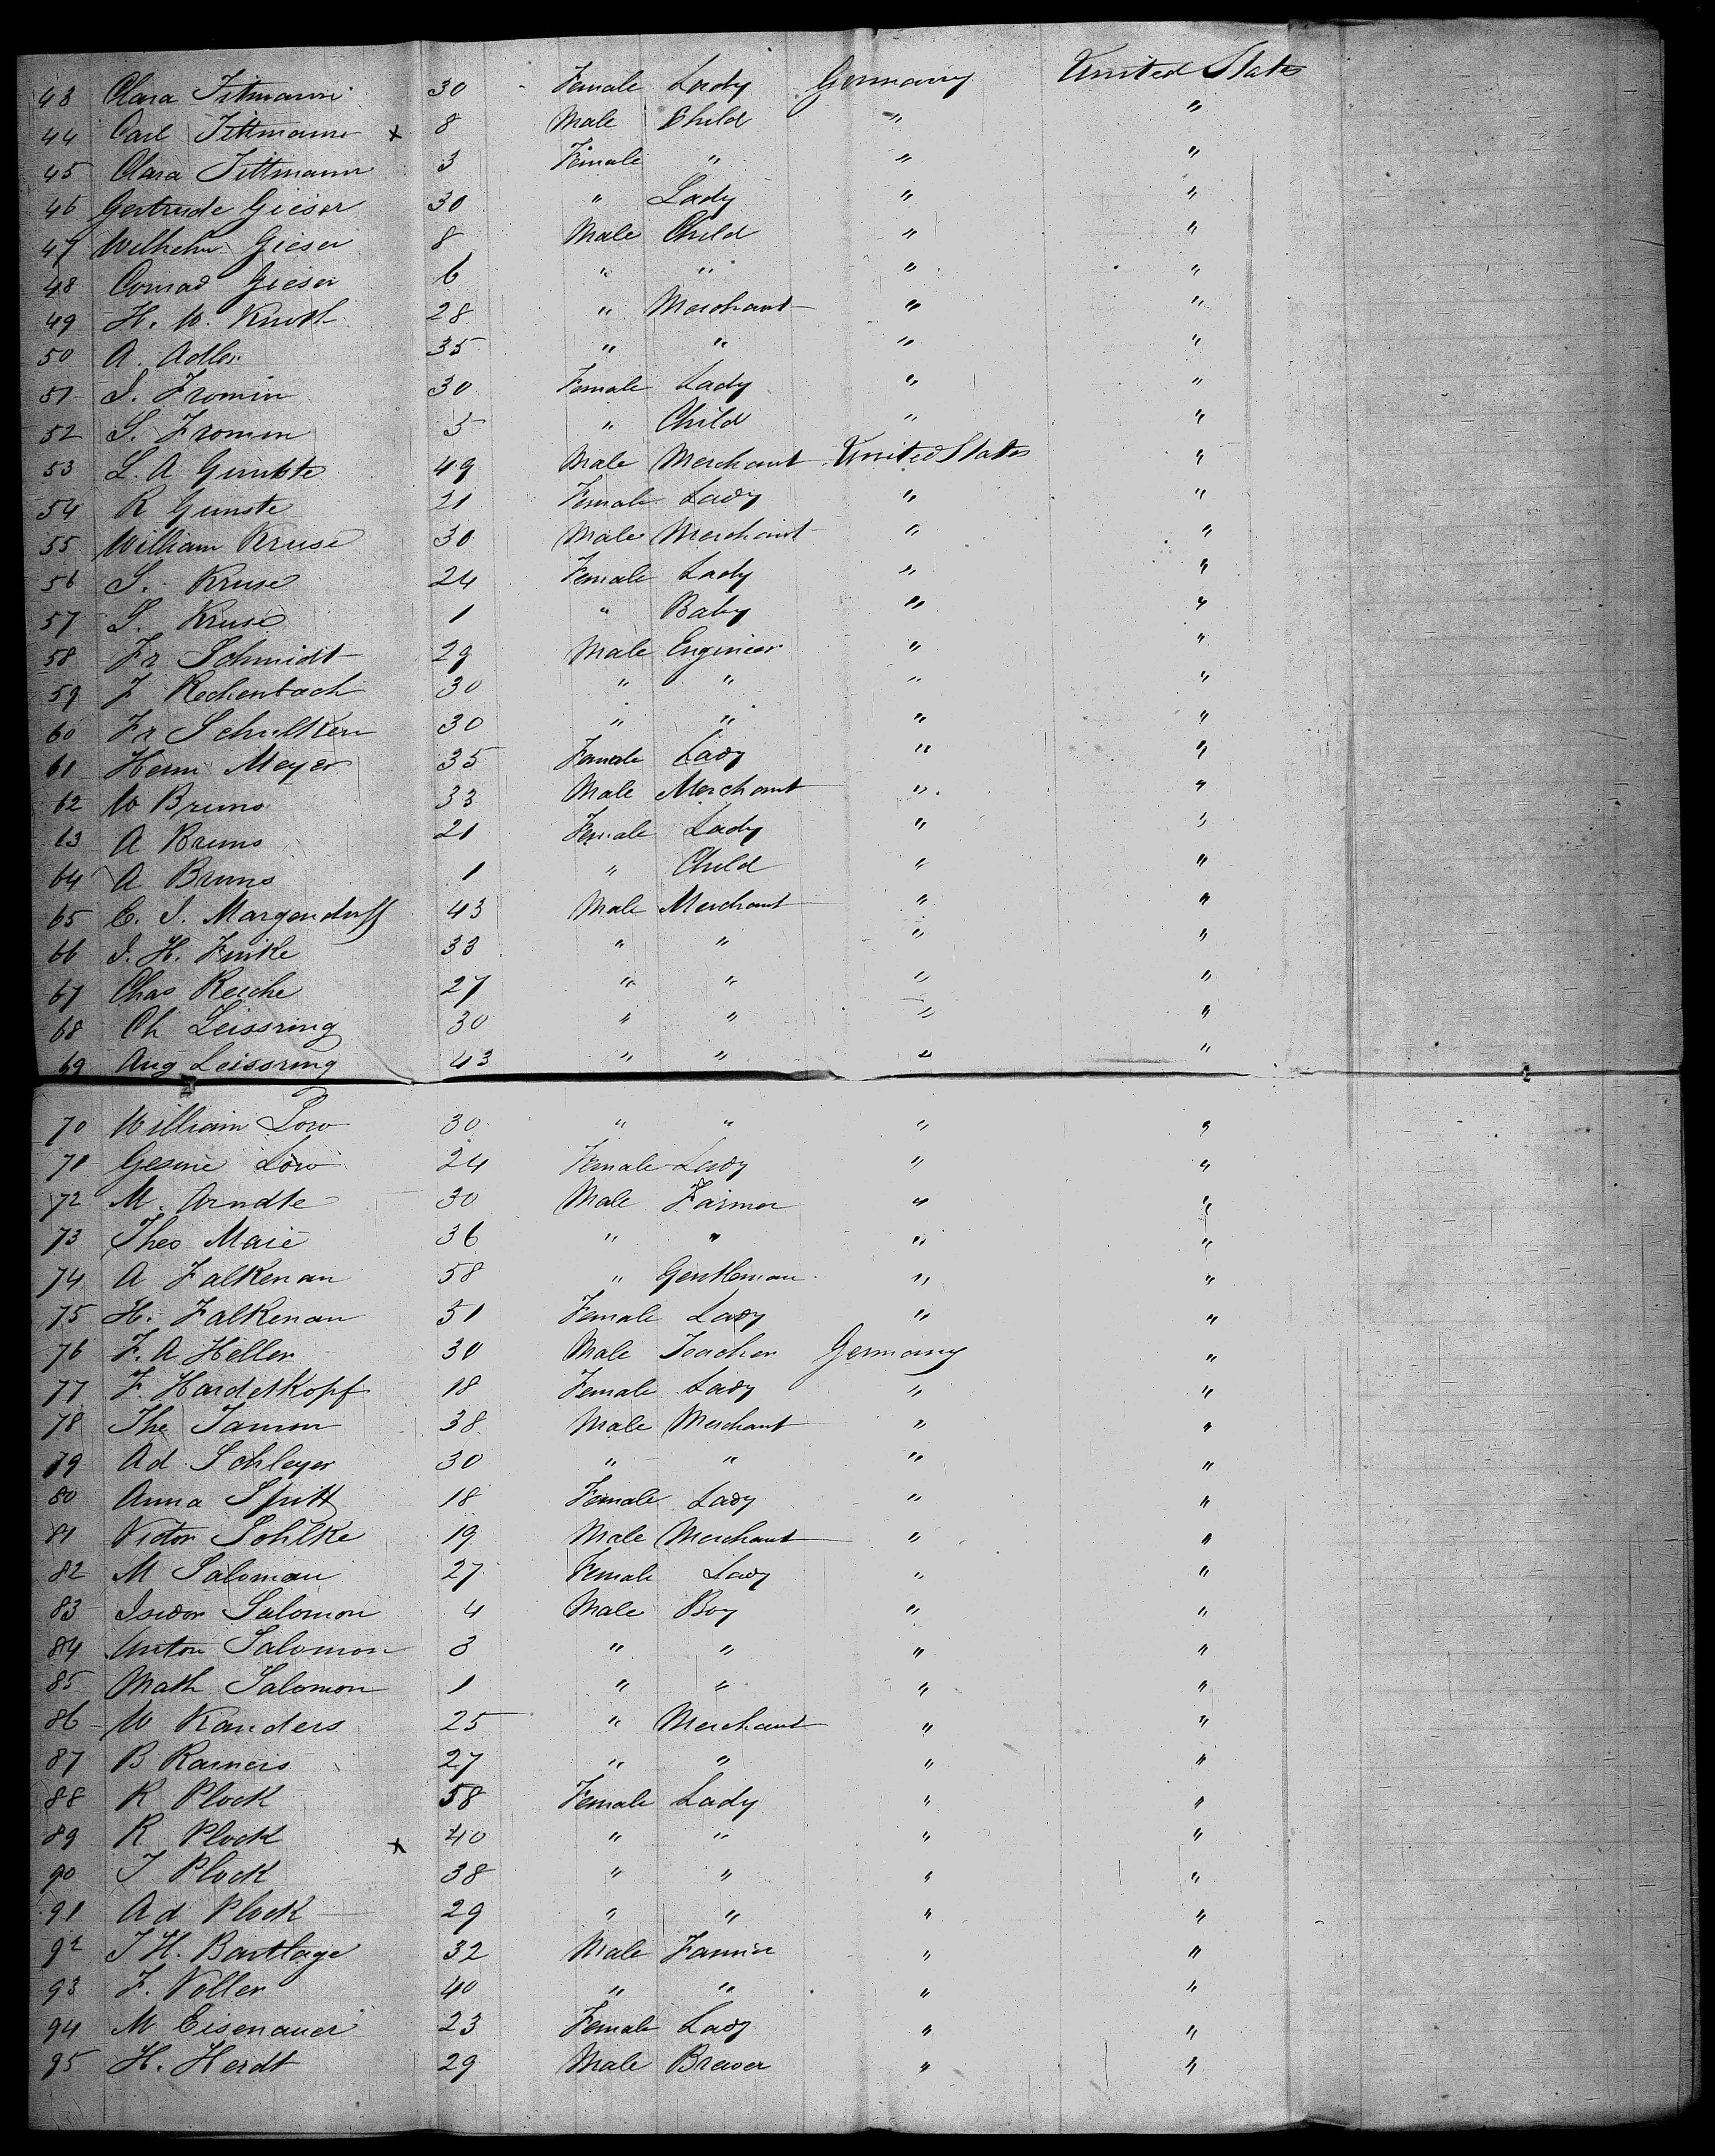 43 Clara Tittmann 30 Female Lady Germany United States
44 Carl Tittmann x 8 Male Child " "
45 Clara Tittmann 3 Female " " "
46 Gertrude Gieser 30 " Lady " "
47 Wilhelm Gieser 8 Male Child " "
48 Conrad Gieser 6 " " " "
49 H. W. 28 " Merchant " "
50 A. Adler 35 " " " "
51 S. Fromin 30 Female Lady " "
52 S. Fromin 5 " Child " "
53 L. A 49 Male Merchant United States "
54 R Gunste 21 Female Lady " "
55 William Kruse 30 Male Merchant " "
56 S. Kruse 24 Female Lady " "
57 S. Kruse 1 " Baby " "
58 Fr Schmidt 29 Male Engineer " "
59 J Rechenbach 30 " " " "
60 Fr Schulken 30 " " " "
61 Herm Meyer 35 Female Lady " "
62 W Bruns 33 Male Merchant " "
63 A Bruns 21 Female Lady " "
64 A Bruns 1 " Child " "
65 C. S. Margendorff 43 Male Merchant " "
66 J. H. Finke 33 " " " "
67 Chas Reiche 27 " " " "
68 Ch Leissring 30 " " " "
69 Aug Leissring 43 " " " "
70 William Low 30 " " " "
71 Gesine Low 24 Female Lady " "
72 M. Arndte 30 Male Farmer " "
73 Theo Maie 36 " " " "
74 A Falkenau 58 " Gentleman " "
75 H. Falkenau 51 Female Lady " "
76 F. A. Heller 30 Male Teacher Germany "
77 F. Hardekopf 18 Female Lady " "
78 The 38 Male Merchant " "
79 Ad Schleyer 30 " " " "
80 Anna 18 Female Lady " "
81 Victor Sohlke 19 Male Merchant " "
82 M Saloman 27 Female Lady " "
83 Isidor Salomon 4 Male Boy " "
84 Anton Salomon 3 " " " "
85 Math Salomon 1 " " " "
86 W Kanders 25 " Merchant " "
87 B 27 " " " "
88 R Plock 58 Female Lady " "
89 R Plock x 40 " " " "
90 J Plock 38 " " " "
91 Ad Plock 29 " " " "
92 J H. Bartlage 32 Male Farmer " "
93 F. Voller 40 " " " "
94 M Eisenauer 23 Female Lady " "
95 H. Herdt 29 Male Brewer " "